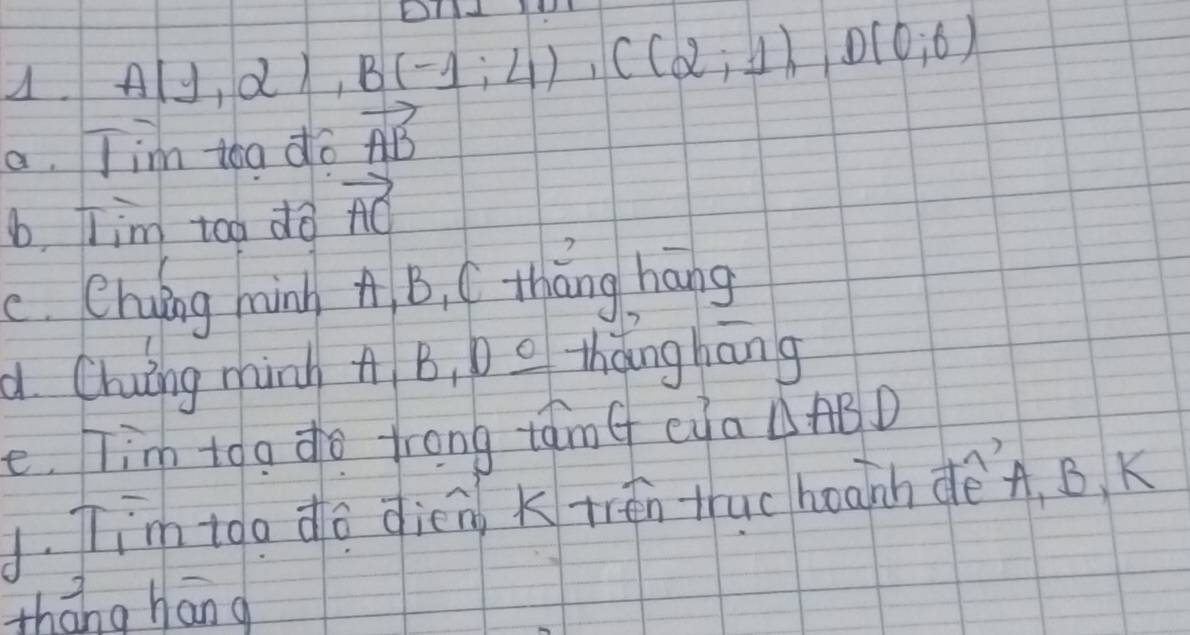 1. A(1, 2), B(-1; 4), C(2; 1), D(0; 6)
a. Tìm tọa độ AB
b. Tìm tọa độ AC
c. Chứng minh A, B, C thẳng hàng
d. Chứng minh A, B, D o thẳng hàng
e. Tìm tọa độ trọng tâm G của Δ ABD
f. Tìm tọa độ điểm K trên trục hoành để A, B, K
thẳng hàng